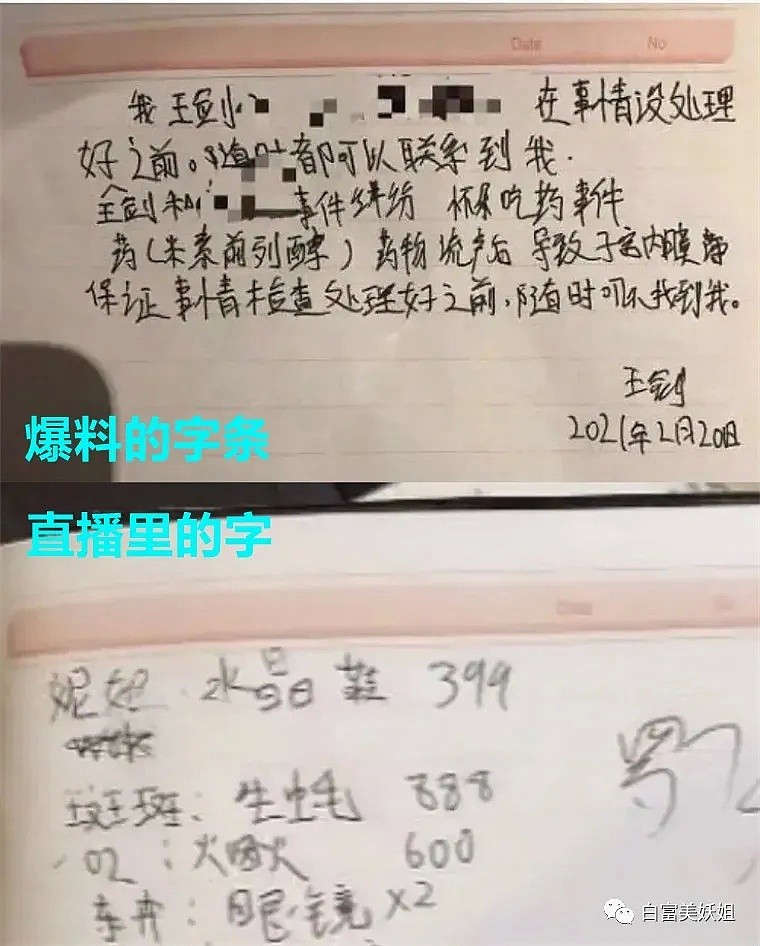 Date No
我王剑 在事情没处理
好之前。随时都可以联系到我.
王剑和 事件纠纷 怀孕吃药事件
药(米索前列醇)药物流产后 导致子宫内膜薄
保证事情检查处理好之前,随时可以找到我。
王剑
2021年2月20日
爆料的字条
直播里的字
Date No
妮妲 水晶鞋 399
斑斑: 生蚝 888
02 : 火焰 600
东奔: 眼镜 x2
白富美妖姐